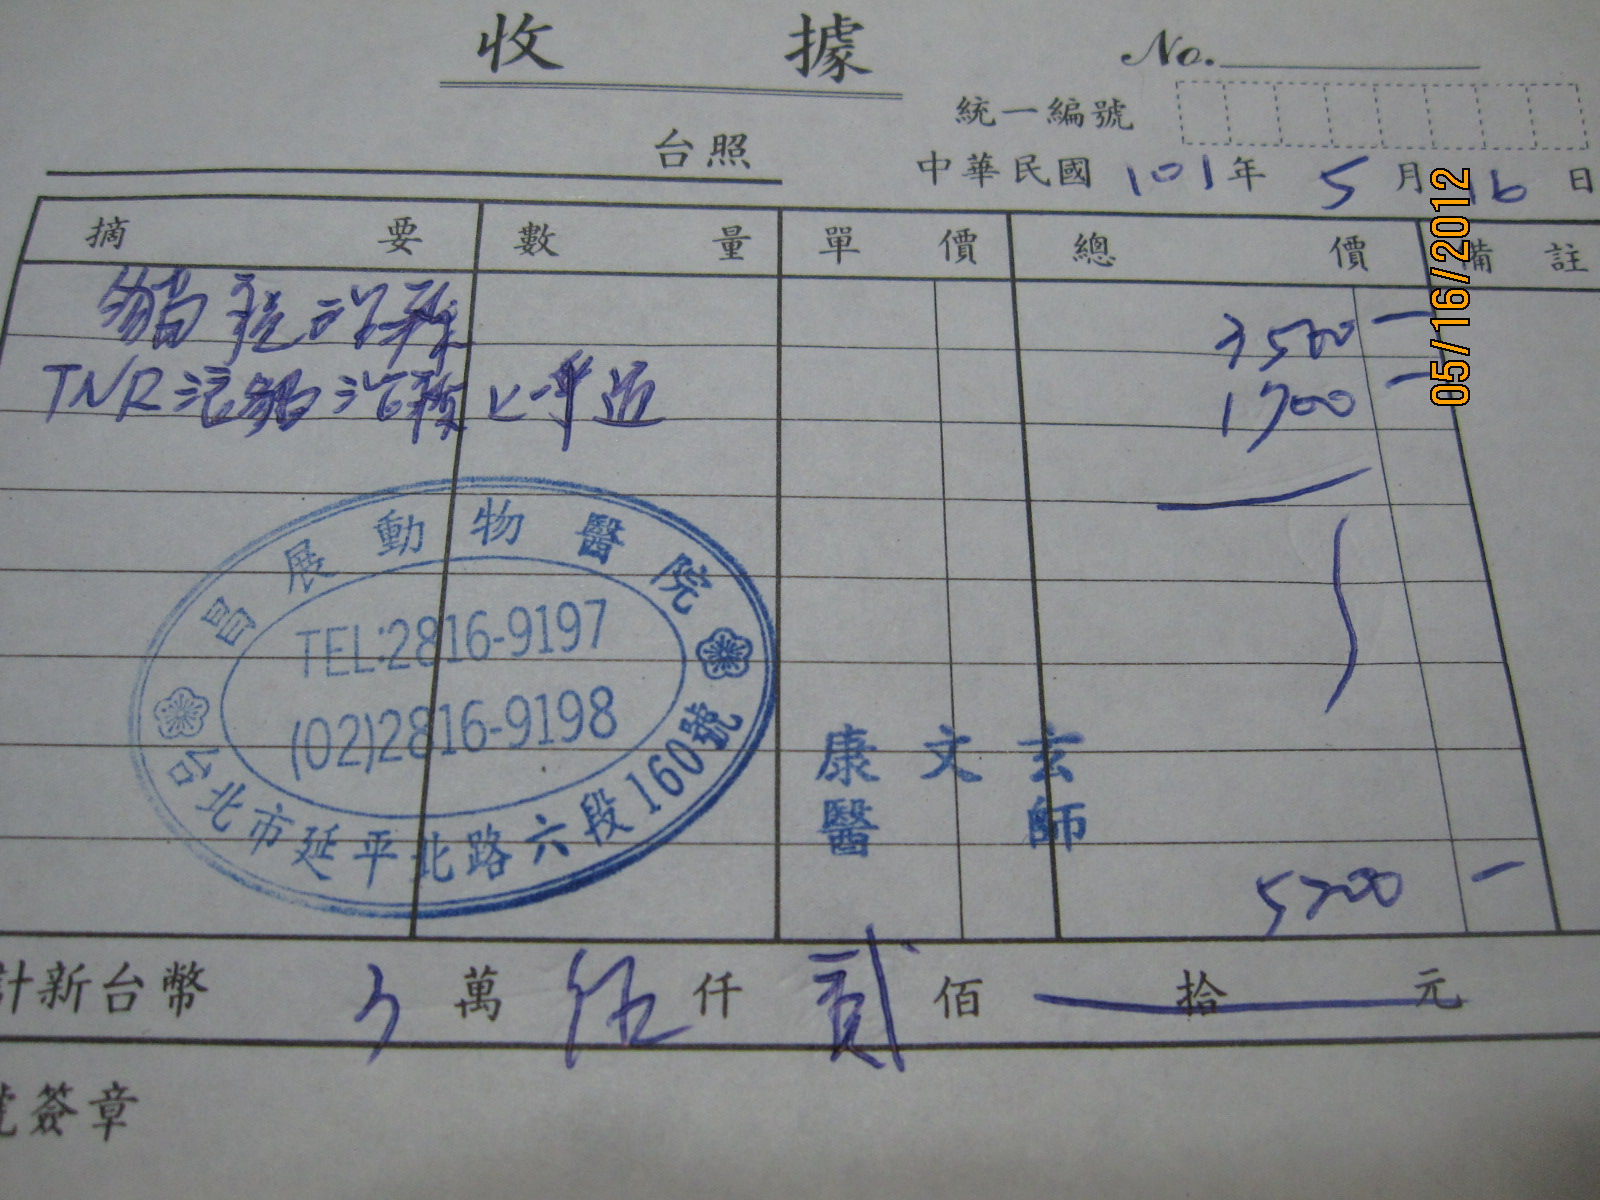 收據
No.
統一編號
台照
中華民國 101 年 5 月 16 日
摘要 數量 單價 總價 備註
貓 治療 3500 —
TNR 流貓治療 1700 —
昌展動物醫院
TEL:2816-9197
(02)2816-9198
台北市延平北路六段160號
康文玄
醫師
5200 —
計新台幣 萬 伍 仟 貳 佰 拾 元
簽章
05/16/2012